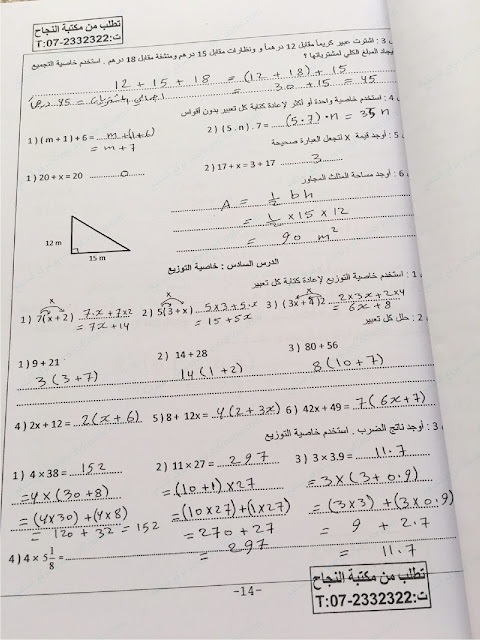 تطلب من مكتبة النجاح
ت:T:07-2332322
3 : اشترت عبير كريماً مقابل 12 درهماً و ونظارات مقابل 15 درهم ومنشفة مقابل 18 درهم . استخدم خاصية التجميع
لإيجاد المبلغ الكلي لمشترياتها ؟
12 + 15 + 18 = (12 + 18) + 15
= 30 + 15 = 45
45 =
4 : استخدم خاصية واحدة أو أكثر لإعادة كتابة كل تعبير بدون أقواس
1) (m + 1) + 6 = m + (1+6) 2) (5 . n) . 7 = (5 . 7) . n = 35 n
= m + 7
5 : أوجد قيمة x لتجعل العبارة صحيحة
1) 20 + x = 20 0 2) 17 + x = 3 + 17 3
6 : أوجد مساحة المثلث المجاور
A = 1/2 bh
= 1/2 x 15 x 12
= 90 m²
12 m
15 m
الدرس السادس : خاصية التوزيع
1 : استخدم خاصية التوزيع لإعادة كتابة كل تعبير
x x x
1) 7(x + 2) 7·x + 7x2 2) 5(3 + x) 5x3 + 5·x 3) (3x + 4)2 2x3x + 2x4
= 7x + 14 = 15 + 5x = 6x + 8
2 : حلل كل تعبير
1) 9 + 21 2) 14 + 28 3) 80 + 56
3 (3 + 7) 14 (1 + 2) 8 (10 + 7)
4) 2x + 12 = 2(x + 6) 5) 8 + 12x = 4(2 + 3x) 6) 42x + 49 = 7(6x + 7)
3 : أوجد ناتج الضرب . استخدم خاصية التوزيع
1) 4 × 38 = 152 2) 11 × 27 = 297 3) 3 × 3.9 = 11.7
= 4 x (30 + 8) = (10 + 1) x 27 = 3 x (3 + 0.9)
= (4x30) + (4x8) = (10x27) + (1x27) = (3x3) + (3x0.9)
= 120 + 32 = 152 = 270 + 27 = 9 + 2.7
4) 4 × 5 1/8 = = 297 = 11.7
-14-
تطلب من مكتبة النجاح
ت:T:07-2332322